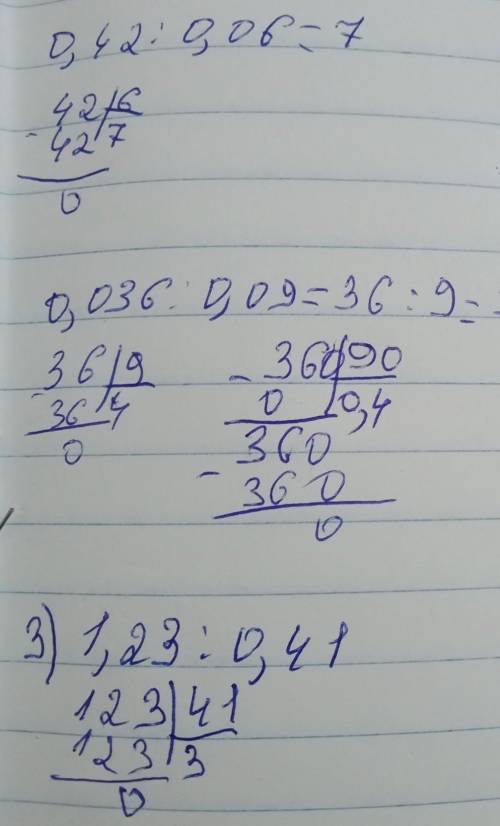 0,42 : 0,06 = 7
42 | 6
- 42 7
0
0,036 : 0,09 = 36 : 9 =
36 | 9
- 36 4
0
- 360 | 90
0 0,4
360
- 360
0
3) 1,23 : 0,41
123 | 41
123 3
0